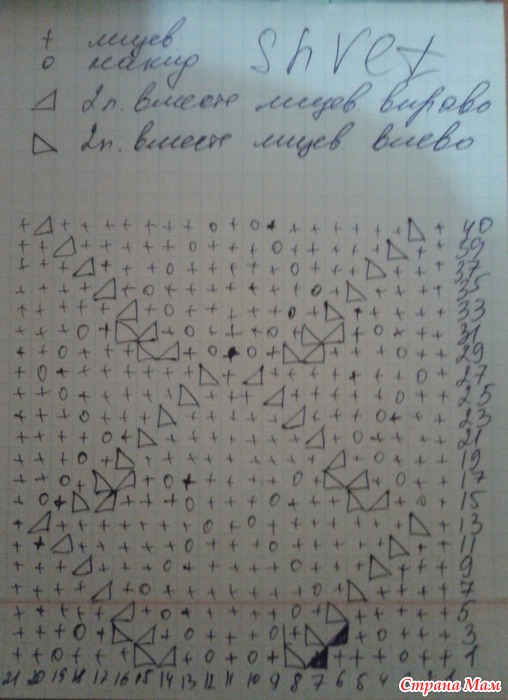 + лицев
о накид
shvet
◿ 2п. вместе лицев. вправо
◺ 2п. вместе лицев влево
40
39
37
35
33
31
29
27
25
23
21
19
17
15
13
11
9
7
5
3
1
21 20 19 18 17 16 15 14 13 12 11 10 9 8 7 6 5 4
Страна Мам